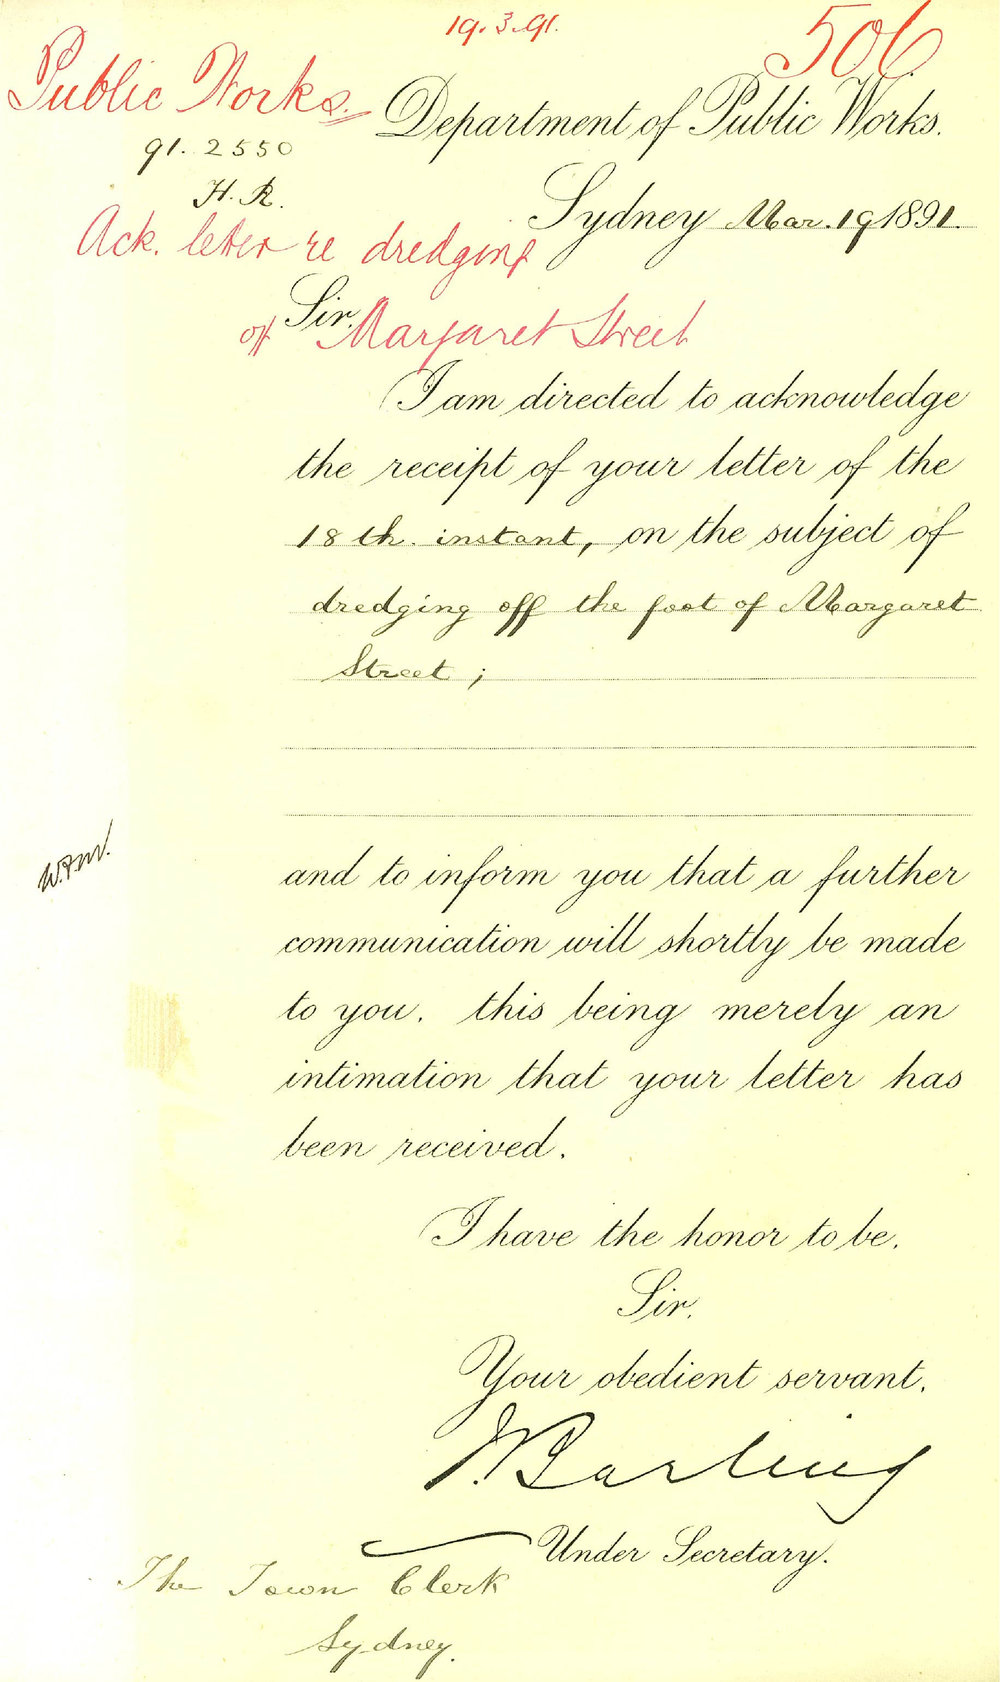 19.3.91.
506
Public Works.
Department of Public Works.
91.2550
H.R.
Sydney Mar. 19 1891.
Ack. letter re dredging
off Margaret Street
Sir.
I am directed to acknowledge
the receipt of your letter of the
18th. instant, on the subject of
dredging off the foot of Margaret
Street;
and to inform you that a further
communication will shortly be made
to you. this being merely an
intimation that your letter has
been received.
I have the honor to be.
Sir.
Your obedient servant.
J. Barling
Under Secretary.
The Town Clerk
Sydney.